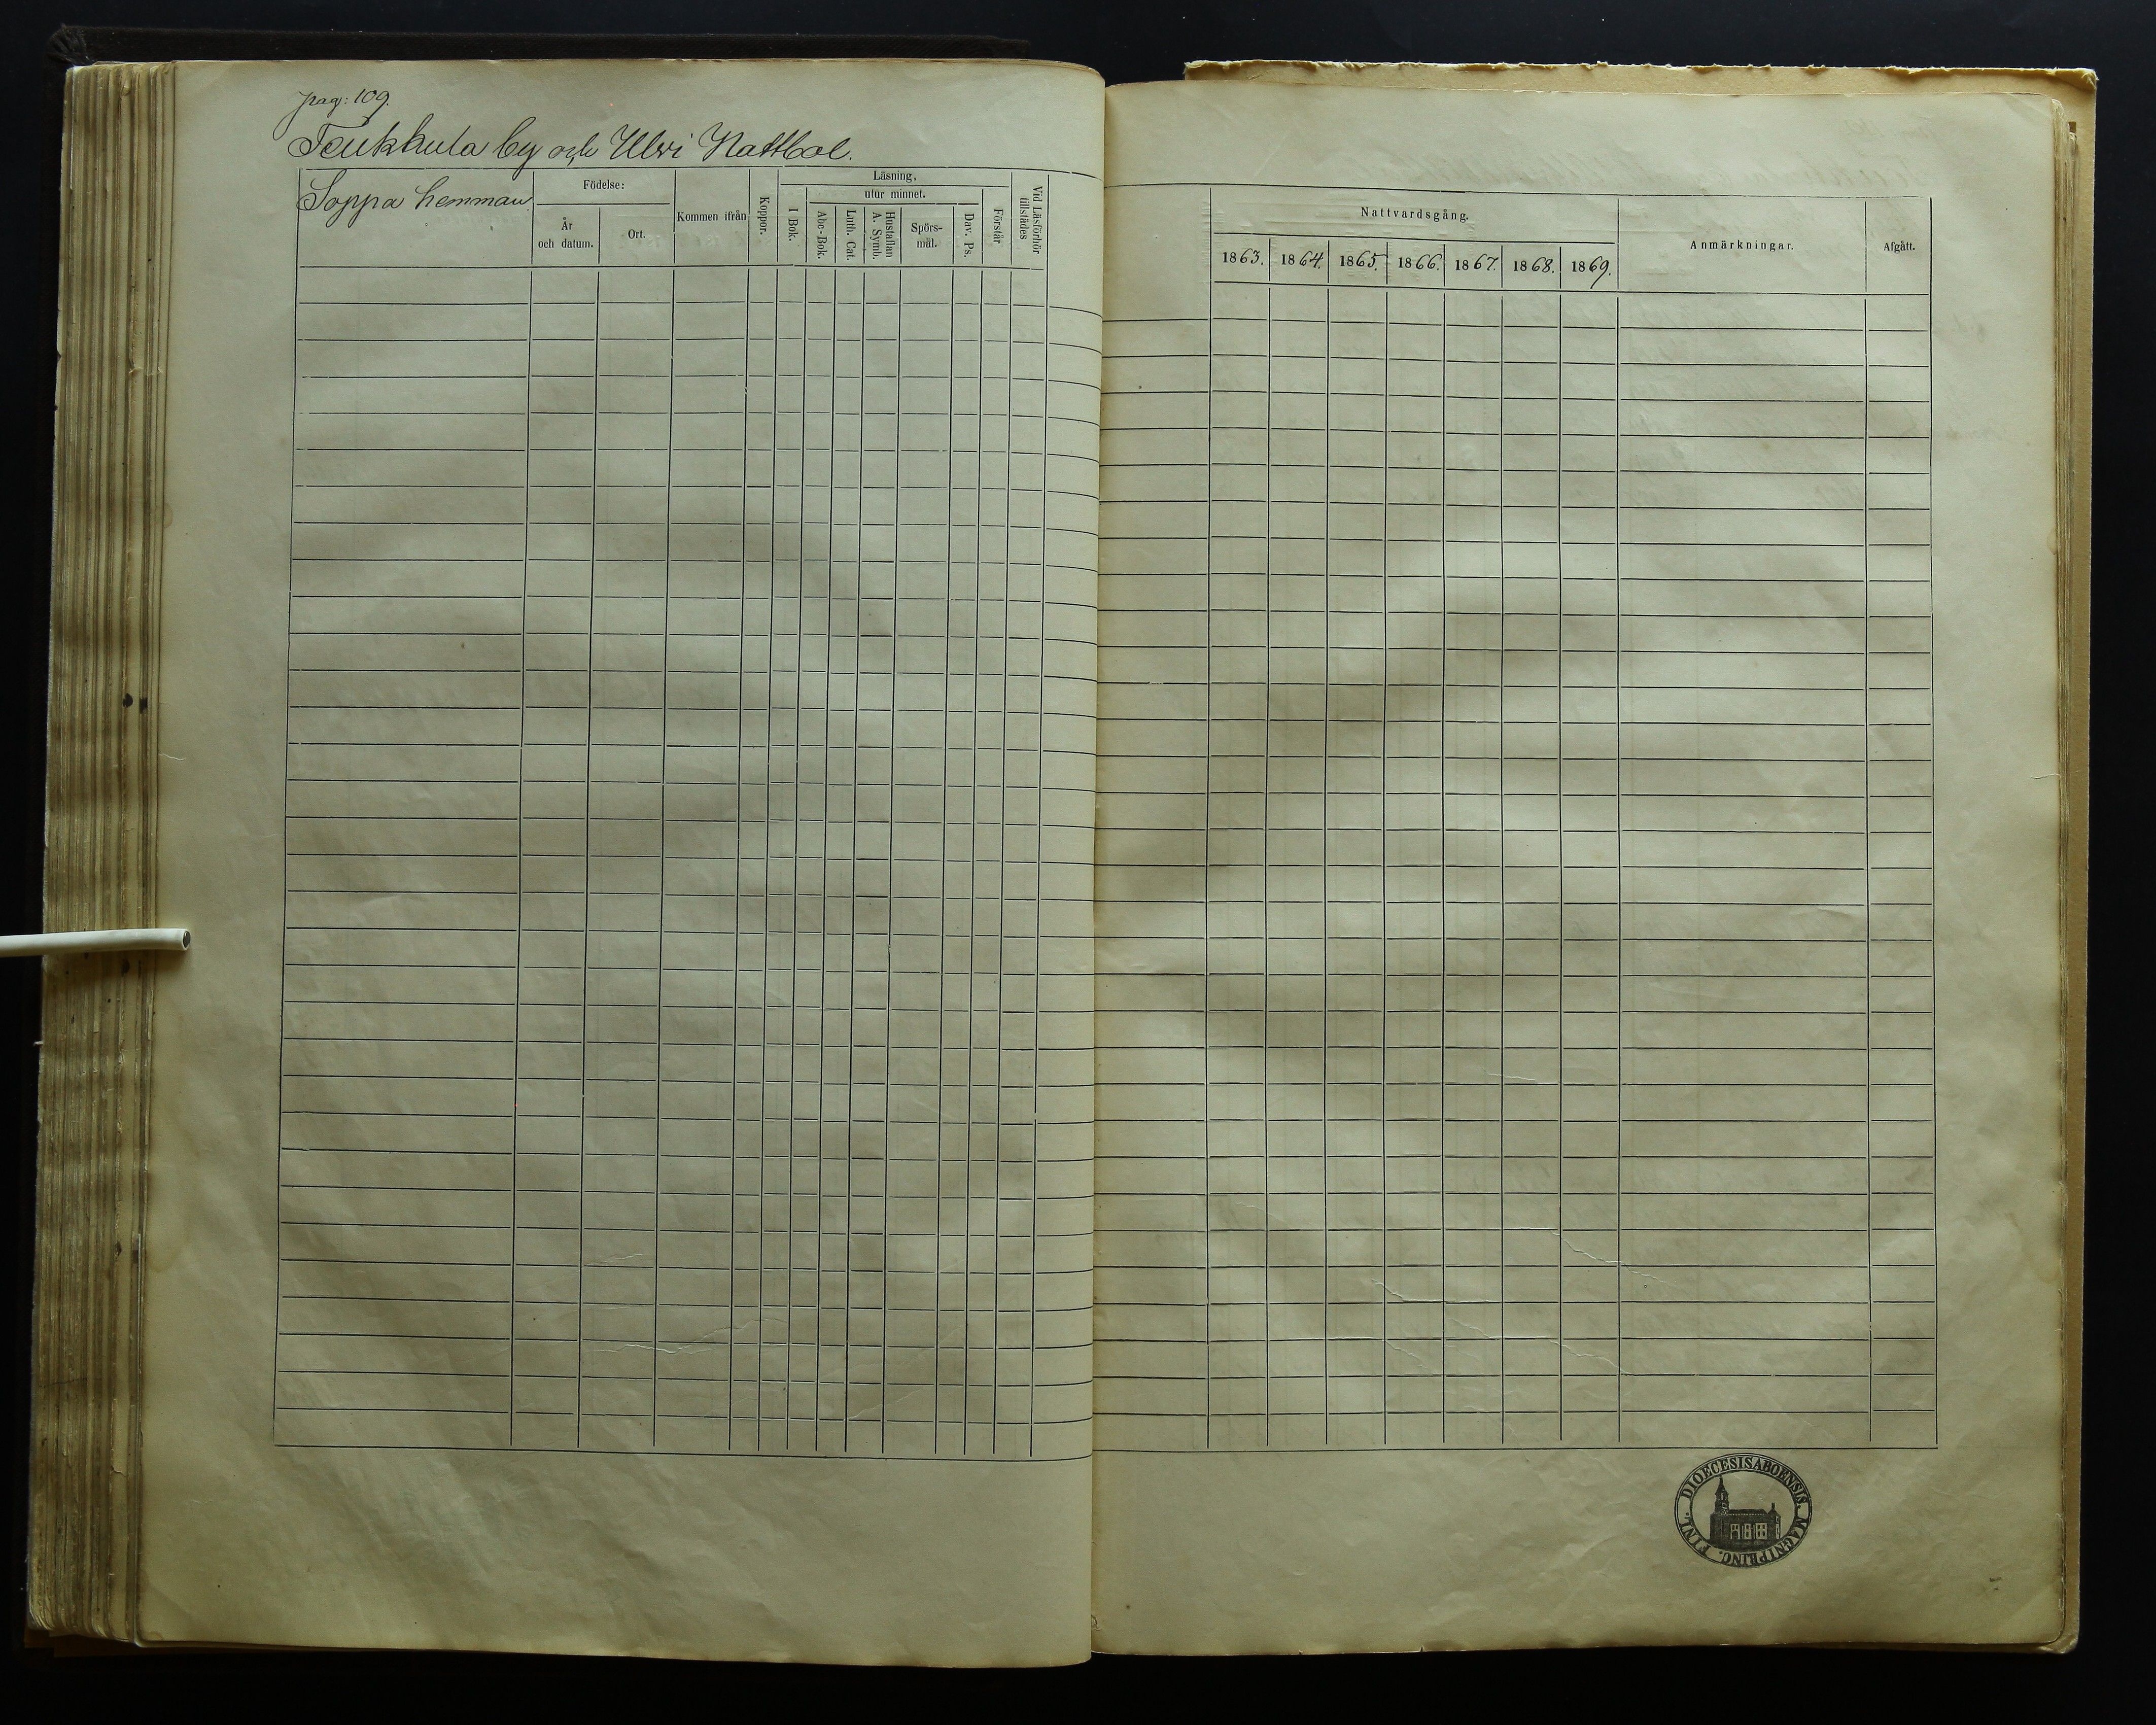 pag: 109.
Teukkula by och Ulvi Nattbol.
Soppa hemman
Födelse:
År
och datum.
Ort.
Kommen ifrån
Koppor.
Läsning,
I Bok.
utur minnet.
Abc-Bok.
Luth. Cat.
Hustaflan
A. Symb.
Spörs-
mål.
Dav. Ps.
Förstår
Vid Läsförhör
tillstädes
Nattvardsgång.
1863. 1864. 1865. 1866. 1867. 1868. 1869.
Anmärkningar.
Afgått.
DIOECESIS ABOENSIS. MAGNI PRINC. FINL.